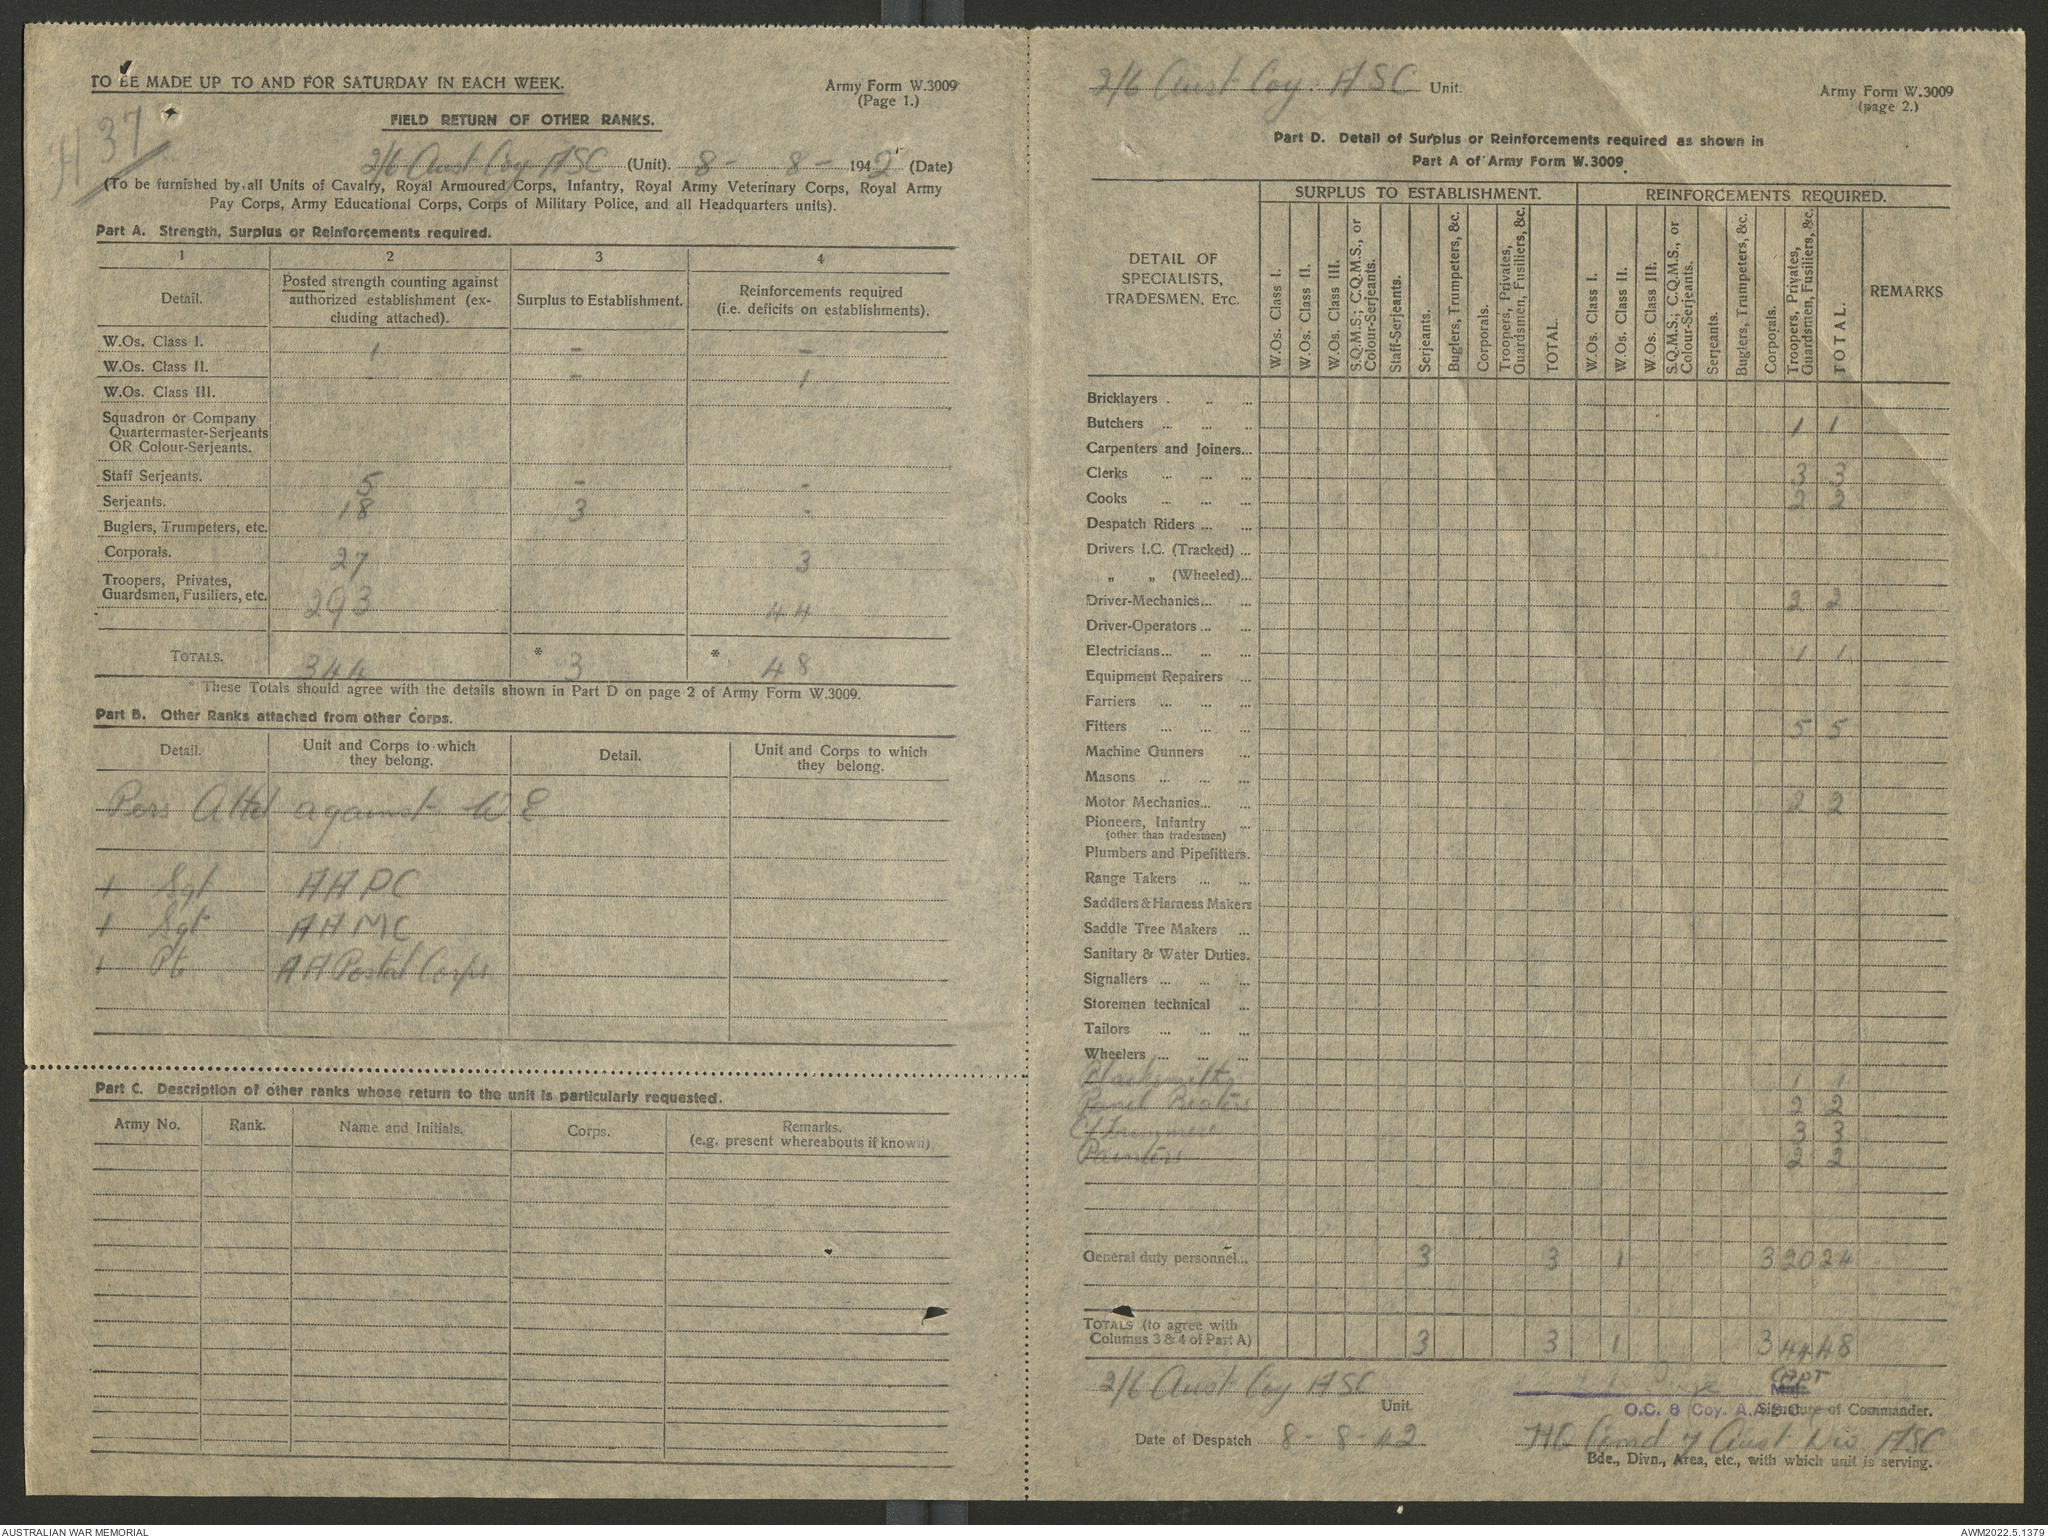 TO BE MADE UP TO AND FOR SATURDAY IN EACH WEEK.
Army Form W.3009
(Page 1.)
H 37
FIELD RETURN OF OTHER RANKS.
2/6 Aust Coy ASC (Unit). 8 - 8 - 1942 (Date)
(To be furnished by all Units of Cavalry, Royal Armoured Corps, Infantry, Royal Army Veterinary Corps, Royal Army
Pay Corps, Army Educational Corps, Corps of Military Police, and all Headquarters units).
Part A. Strength, Surplus or Reinforcements required.
1 2 3 4
Detail.
Posted strength counting against
authorized establishment (ex-
cluding attached).
Surplus to Establishment.
Reinforcements required
(i.e. deficits on establishments).
W.Os. Class I. 1 - -
W.Os. Class II. - - 1
W.Os. Class III.
Squadron or Company
Quartermaster-Serjeants
OR Colour-Serjeants.
Staff Serjeants. 5 - -
Serjeants. 18 3 -
Buglers, Trumpeters, etc.
Corporals. 27 3
Troopers, Privates,
Guardsmen, Fusiliers, etc. 293 44
TOTALS. 344 * 3 * 48
* These Totals should agree with the details shown in Part D on page 2 of Army Form W.3009.
Part B. Other Ranks attached from other Corps.
Detail.
Unit and Corps to which
they belong.
Detail.
Unit and Corps to which
they belong.
Pers Attd against WE
1 Sgt AAPC
1 Sgt AAMC
1 Pte AA Postal Corps
Part C. Description of other ranks whose return to the unit is particularly requested.
Army No. Rank. Name and Initials. Corps. Remarks.
(e.g. present whereabouts if known)
2/6 Aust Coy. ASC Unit.
Army Form W.3009
(page 2.)
Part D. Detail of Surplus or Reinforcements required as shown in
Part A of Army Form W.3009
DETAIL OF
SPECIALISTS,
TRADESMEN, ETC.
SURPLUS TO ESTABLISHMENT.
W.Os. Class I.
W.Os. Class II.
W.Os. Class III.
S.Q.M.S.; C.Q.M.S., or
Colour-Serjeants.
Staff-Serjeants.
Serjeants.
Buglers, Trumpeters, &c.
Corporals.
Troopers, Privates,
Guardsmen, Fusiliers, &c.
TOTAL.
REINFORCEMENTS REQUIRED.
W.Os. Class I.
W.Os. Class II.
W.Os. Class III.
S.Q.M.S.; C.Q.M.S., or
Colour-Serjeants.
Serjeants.
Buglers, Trumpeters, &c.
Corporals.
Troopers, Privates,
Guardsmen, Fusiliers, &c.
TOTAL.
REMARKS
Bricklayers . .. ...
Butchers ... ... .. 1 1
Carpenters and Joiners...
Clerks ... ... ... 3 3
Cooks ... ... ... 2 2
Despatch Riders ... ...
Drivers I.C. (Tracked) ...
„ „ (Wheeled)...
Driver-Mechanics... ... 2 2
Driver-Operators ... ...
Electricians... ... ... 1 1
Equipment Repairers ...
Farriers ... ... ...
Fitters ... ... ... 5 5
Machine Gunners ...
Masons ... ... ...
Motor Mechanics... ... 2 2
Pioneers, Infantry ...
(other than tradesmen)
Plumbers and Pipefitters.
Range Takers ... ...
Saddlers & Harness Makers
Saddle Tree Makers ...
Sanitary & Water Duties.
Signallers ... ... ...
Storemen technical ...
Tailors ... ... ...
Wheelers ... ... ...
Blacksmiths 1 1
Panel Beaters 2 2
3 3
Painters 2 2
General duty personnel... 3 3 1 3 20 24
TOTALS (to agree with
Columns 3 & 4 of Part A) 3 3 1 3 44 48
2/6 Aust Coy ASC
Unit.
Capt
Maj.
O.C. 6 Coy. A.A.S.C. Signature of Commander.
Date of Despatch 8 - 8 - 42
HQ Comd 7 Aust Div ASC
Bde., Divn., Area, etc., with which unit is serving.
AUSTRALIAN WAR MEMORIAL
AWM2022.5.1379